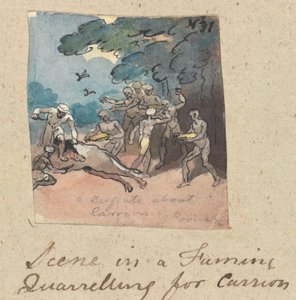 431
a Dispute about
Carrion Poonah
Scene in a Famine
Quarrelling for Carrion